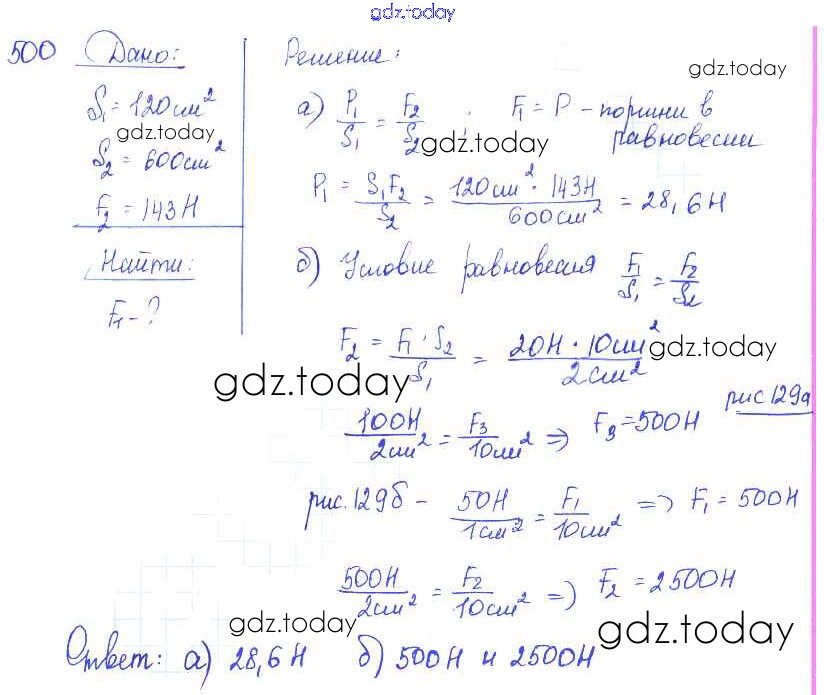 gdz.today
500 Дано: Решение:
gdz.today
S₁ = 120 см²
gdz.today
S₂ = 600 см²
F₂ = 143 Н
Найти:
F₁ - ?
а) P₁/S₁ = F₂/S₂ ; F₁ = P - поршни в
равновесии
gdz.today
P₁ = S₁F₂/S₂ = 120 см² · 143 Н/600 см² = 28,6 Н
б) Условие равновесия F₁/S₁ = F₂/S₂
F₂ = F₁ · S₂/S₁ = 20 Н · 10 см²/2 см²
gdz.today
gdz.today
рис 129а
100 Н/2 см² = F₃/10 см² ⇒ F₃ = 500 Н
рис. 129б - 50 Н/1 см² = F₁/10 см² ⇒ F₁ = 500 Н
500 Н/2 см² = F₂/10 см² ⇒ F₂ = 2500 Н
gdz.today
gdz.today
Ответ: а) 28,6 Н б) 500 Н и 2500 Н